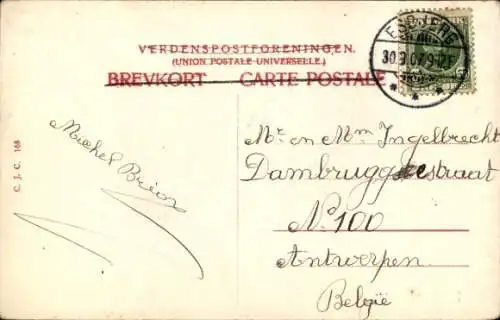 VERDENSPOSTFORENINGEN.
(UNION POSTALE UNIVERSELLE.)
BREVKORT CARTE POSTALE
30.9.07. 9-12F
C. J. C. 168
Michel
Mr. en Mm Ingelbrecht
Dambruggestraat
No 100
Antwerpen
België